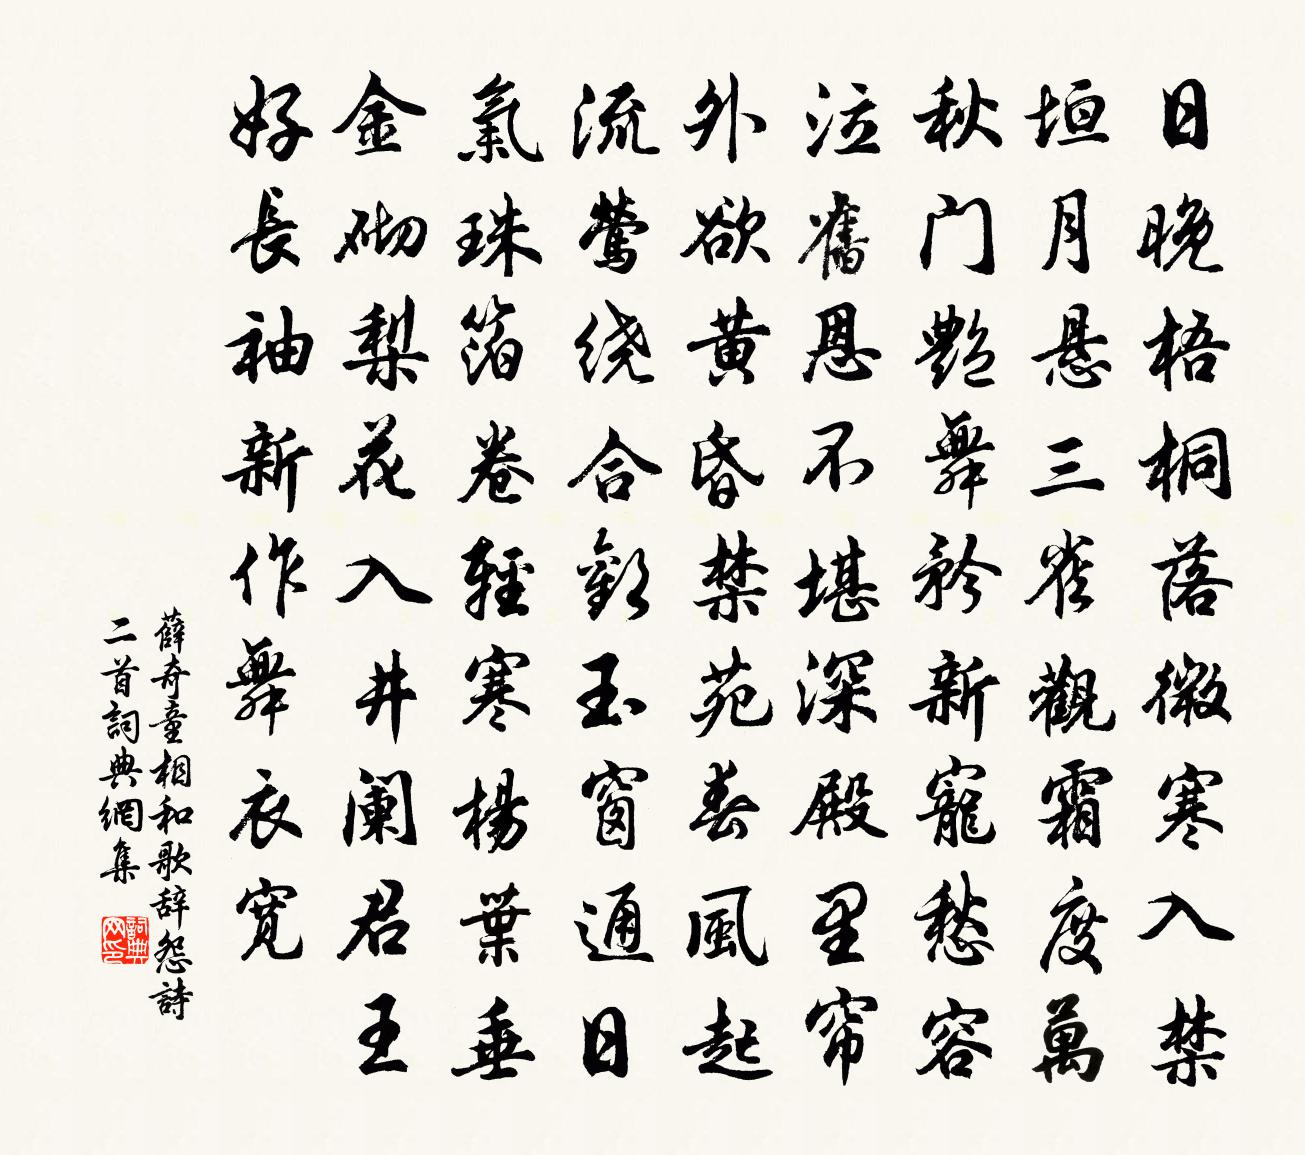 日晚梧桐落微寒入禁
垣月悬三雀觀霜度萬
秋门艷舞矜新寵愁容
泣舊恩不堪深殿里帘
外欲黄昏禁苑春風起
流莺绕合歡玉窗通日
氣珠箔卷輕寒楊葉垂
金砌梨花入井阑君王
好長袖新作舞衣宽
薛奇童相和歌辞怨詩
二首詞典網集
詞典网印